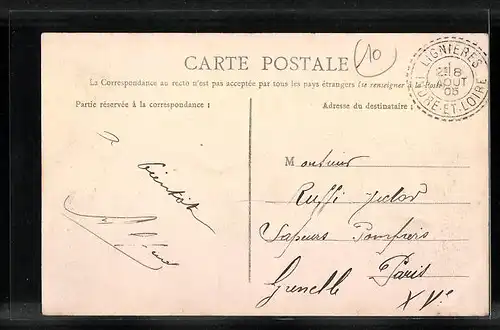 CARTE POSTALE
10
LIGNIERES
28
AOUT
05
EURE-ET-LOIRE
La Correspondance au recto n'est pas acceptée par tous les pays étrangers (se renseigner à la Poste)
Partie réservée à la correspondance :
Adresse du destinataire :
A
bientôt
Monsieur
Sapeurs Pompiers
Grenelle Paris
XVe